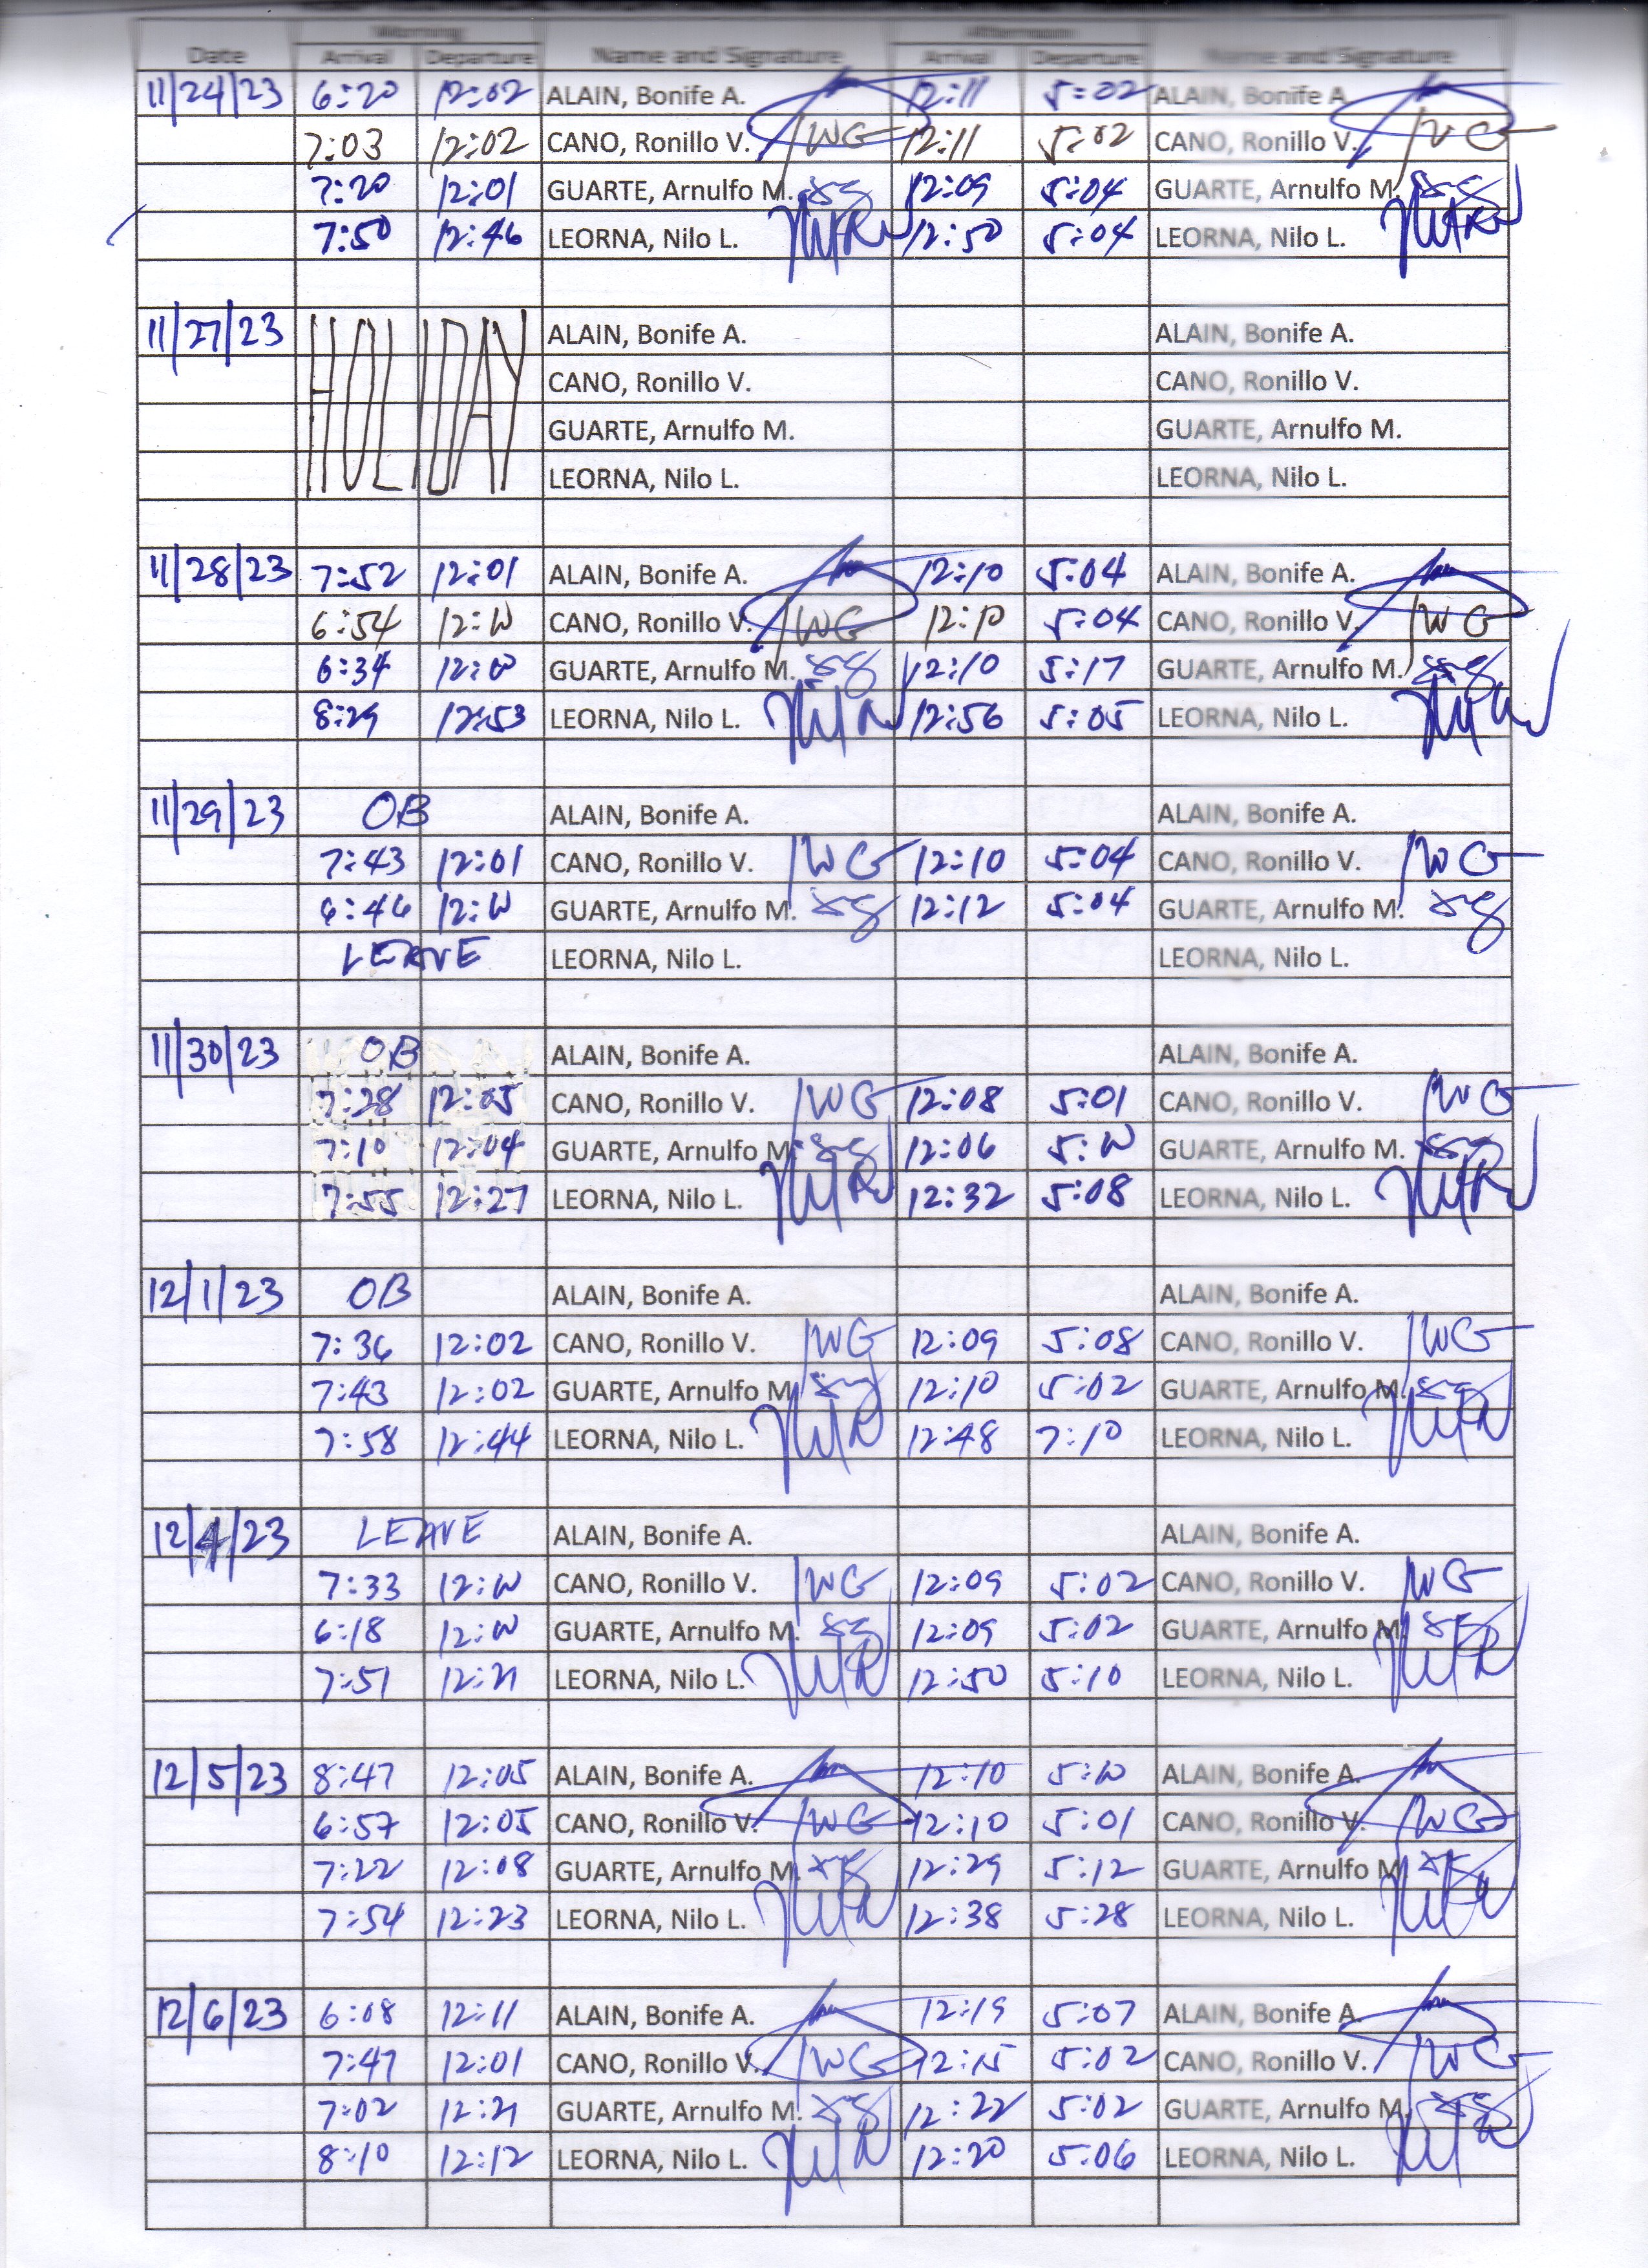 Morning Afternoon
Date Arrival Departure Name and Signature Arrival Departure Name and Signature
11/24/23 6:20 12:02 ALAIN, Bonife A. 12:11 5:02 ALAIN, Bonife A.
7:03 12:02 CANO, Ronillo V. 12:11 5:02 CANO, Ronillo V.
7:20 12:01 GUARTE, Arnulfo M. 12:09 5:04 GUARTE, Arnulfo M.
7:50 12:46 LEORNA, Nilo L. 12:50 5:04 LEORNA, Nilo L.
11/27/23 HOLIDAY ALAIN, Bonife A. ALAIN, Bonife A.
CANO, Ronillo V. CANO, Ronillo V.
GUARTE, Arnulfo M. GUARTE, Arnulfo M.
LEORNA, Nilo L. LEORNA, Nilo L.
11/28/23 7:52 12:01 ALAIN, Bonife A. 12:10 5:04 ALAIN, Bonife A.
6:54 12:00 CANO, Ronillo V. 12:10 5:04 CANO, Ronillo V.
6:34 12:00 GUARTE, Arnulfo M. 12:10 5:17 GUARTE, Arnulfo M.
8:29 12:53 LEORNA, Nilo L. 12:56 5:05 LEORNA, Nilo L.
11/29/23 OB ALAIN, Bonife A. ALAIN, Bonife A.
7:43 12:01 CANO, Ronillo V. 12:10 5:04 CANO, Ronillo V.
6:46 12:00 GUARTE, Arnulfo M. 12:12 5:04 GUARTE, Arnulfo M.
LEAVE LEORNA, Nilo L. LEORNA, Nilo L.
11/30/23 OB ALAIN, Bonife A. ALAIN, Bonife A.
7:28 12:05 CANO, Ronillo V. 12:08 5:01 CANO, Ronillo V.
7:10 12:04 GUARTE, Arnulfo M. 12:06 5:00 GUARTE, Arnulfo M.
7:55 12:27 LEORNA, Nilo L. 12:32 5:08 LEORNA, Nilo L.
12/1/23 OB ALAIN, Bonife A. ALAIN, Bonife A.
7:36 12:02 CANO, Ronillo V. 12:09 5:08 CANO, Ronillo V.
7:43 12:02 GUARTE, Arnulfo M. 12:10 5:02 GUARTE, Arnulfo M.
7:58 12:44 LEORNA, Nilo L. 12:48 7:10 LEORNA, Nilo L.
12/4/23 LEAVE ALAIN, Bonife A. ALAIN, Bonife A.
7:33 12:00 CANO, Ronillo V. 12:09 5:02 CANO, Ronillo V.
6:18 12:00 GUARTE, Arnulfo M. 12:09 5:02 GUARTE, Arnulfo M.
7:51 12:21 LEORNA, Nilo L. 12:50 5:10 LEORNA, Nilo L.
12/5/23 8:47 12:05 ALAIN, Bonife A. 12:10 5:00 ALAIN, Bonife A.
6:57 12:05 CANO, Ronillo V. 12:10 5:01 CANO, Ronillo V.
7:22 12:08 GUARTE, Arnulfo M. 12:29 5:12 GUARTE, Arnulfo M.
7:54 12:23 LEORNA, Nilo L. 12:38 5:28 LEORNA, Nilo L.
12/6/23 6:08 12:11 ALAIN, Bonife A. 12:19 5:07 ALAIN, Bonife A.
7:47 12:01 CANO, Ronillo V. 12:15 5:02 CANO, Ronillo V.
7:02 12:21 GUARTE, Arnulfo M. 12:22 5:02 GUARTE, Arnulfo M.
8:10 12:12 LEORNA, Nilo L. 12:20 5:06 LEORNA, Nilo L.